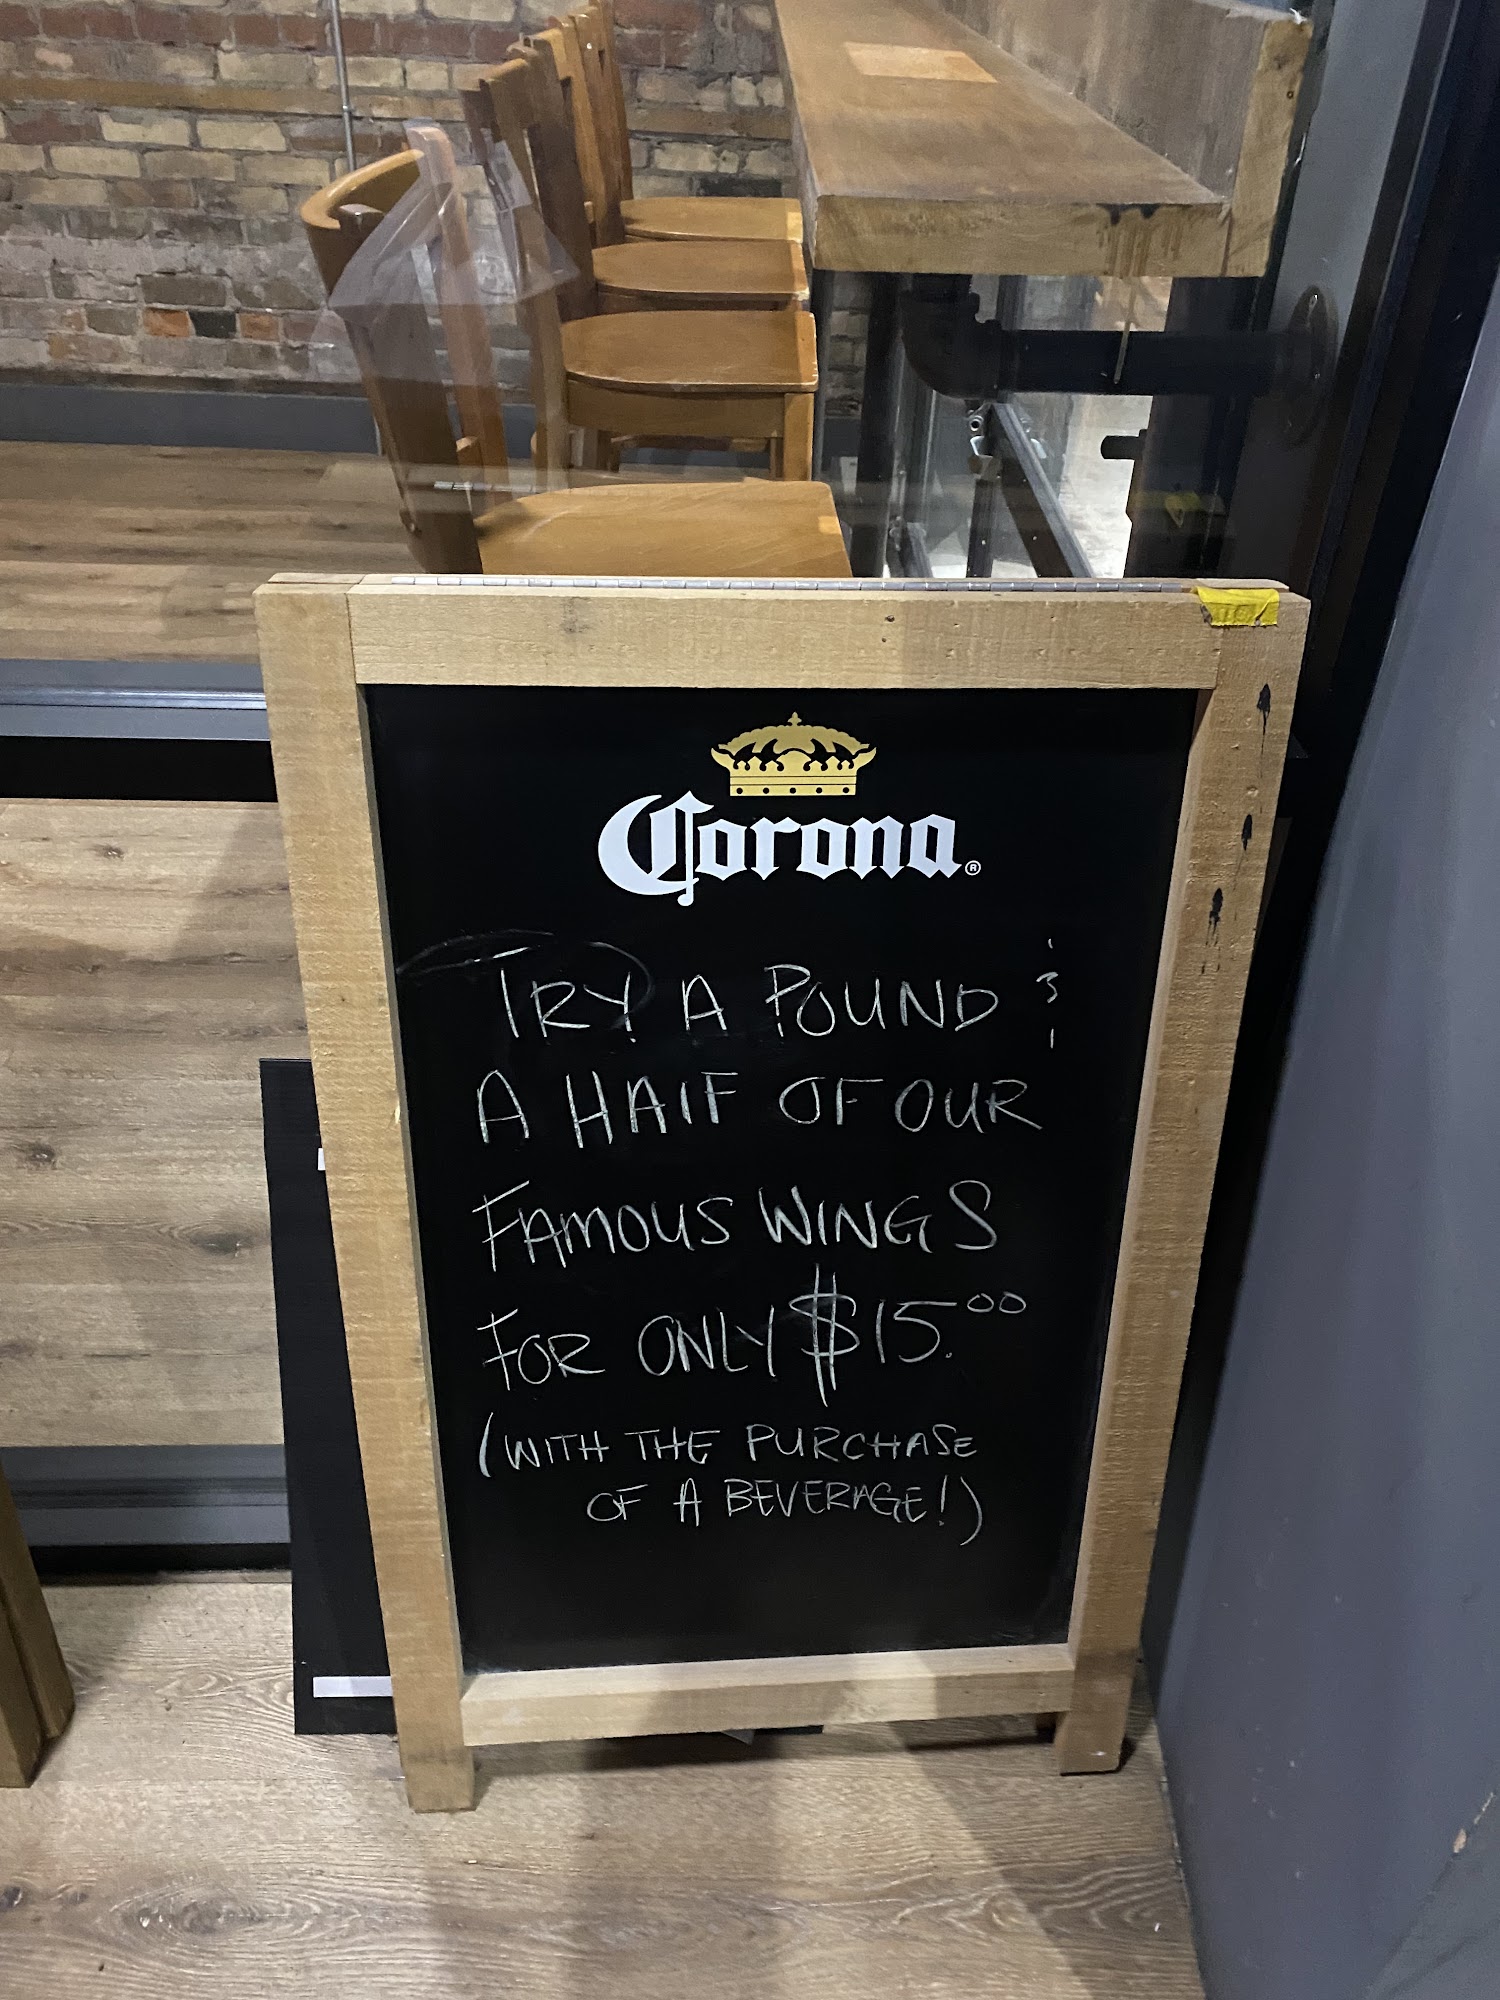 Corona®
TRY A POUND &
A HALF OF OUR
FAMOUS WINGS
FOR ONLY $15.00
(WITH THE PURCHASE
OF A BEVERAGE!)